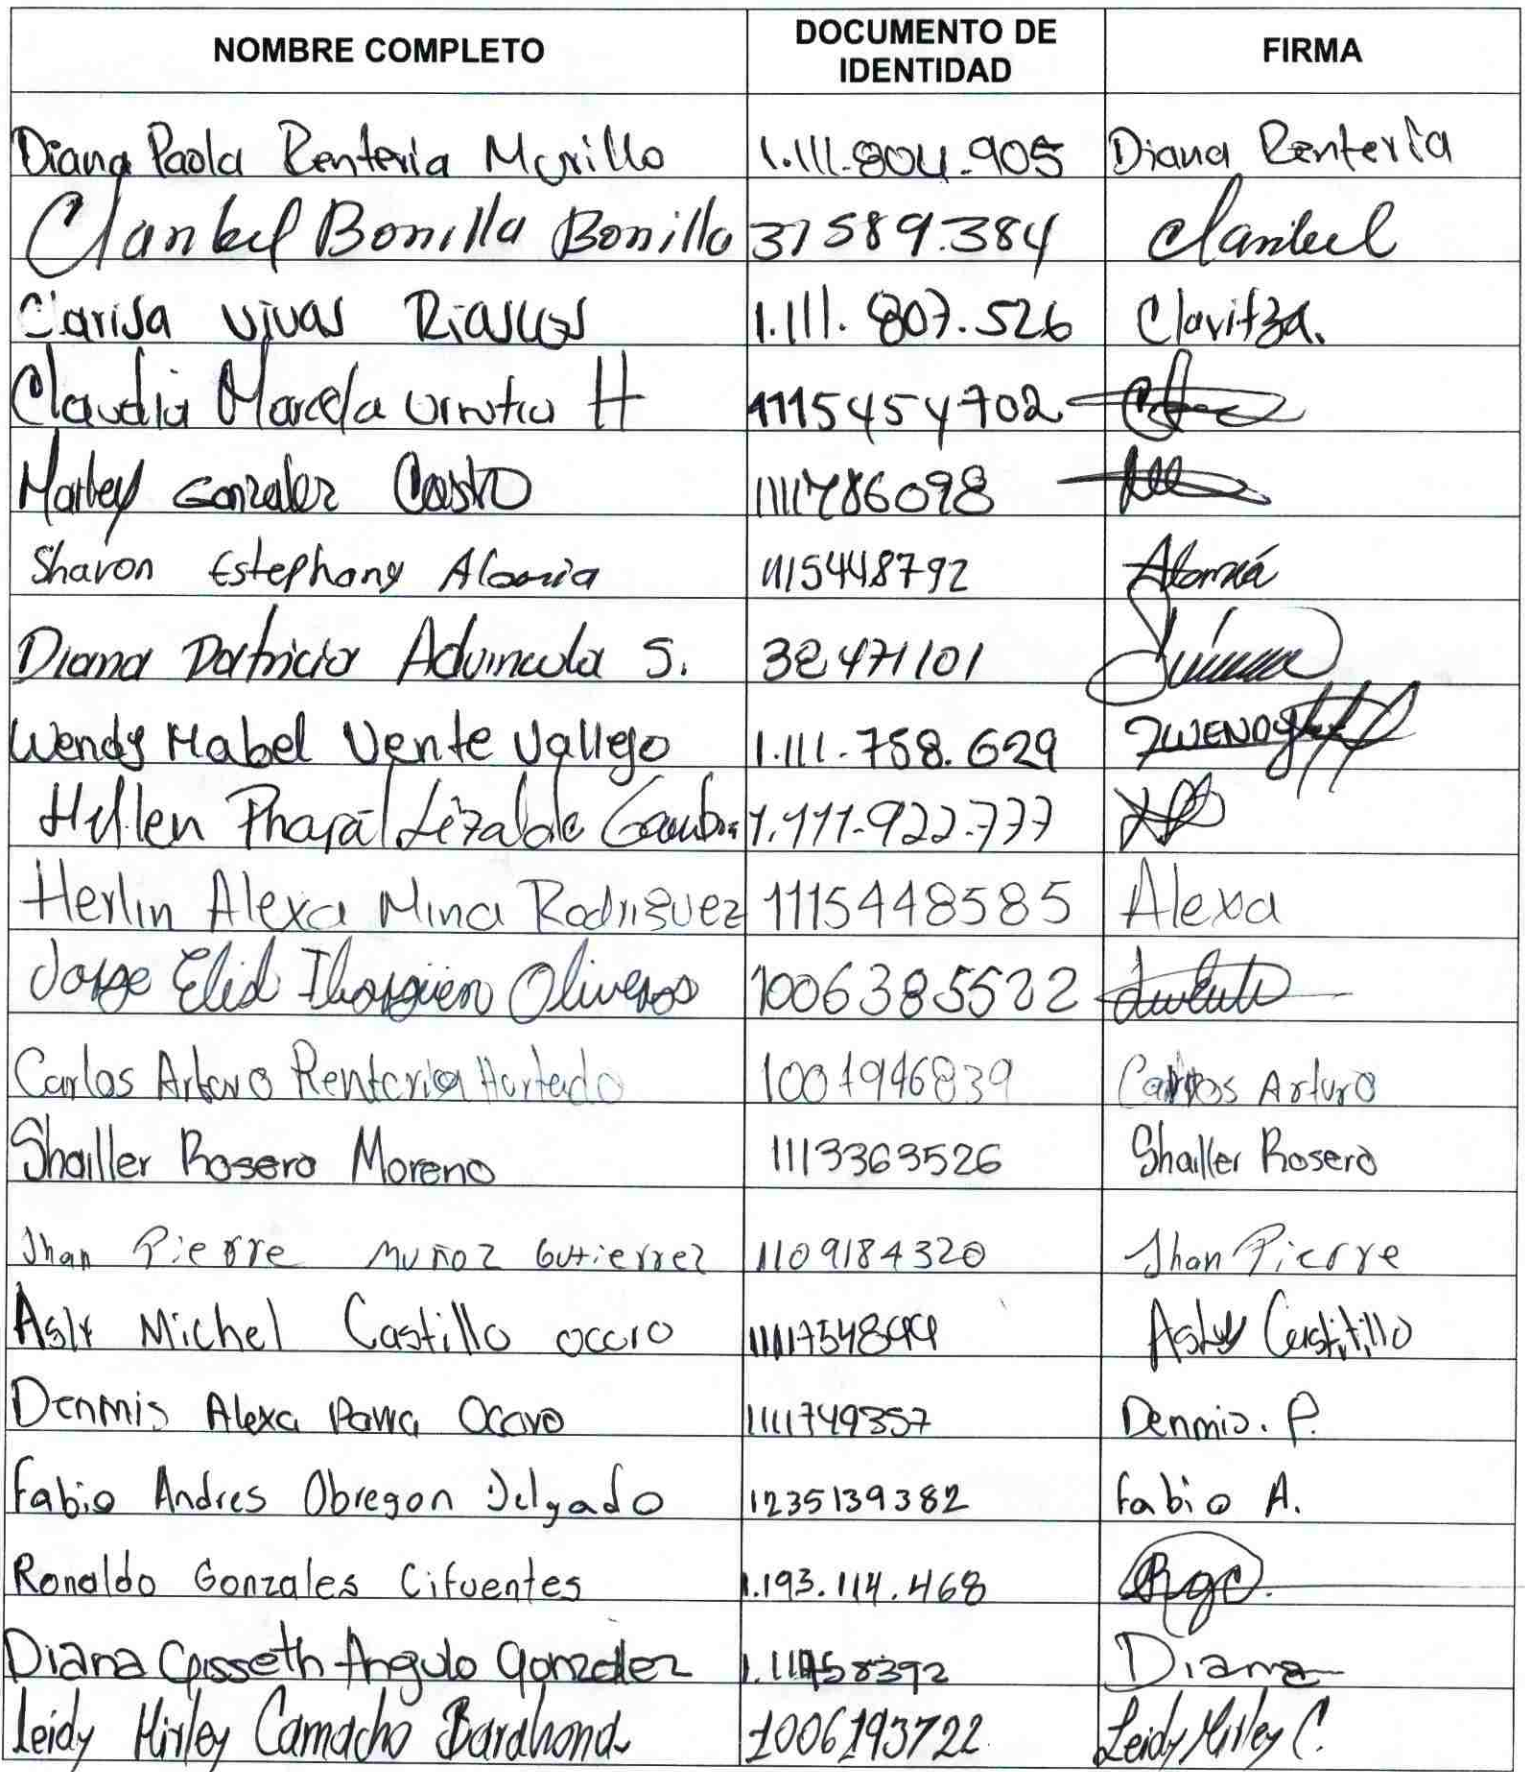 NOMBRE COMPLETO DOCUMENTO DE IDENTIDAD FIRMA
Diana Paola Renteria Murillo 1.111.804.905 Diana Rentería
Claribel Bonilla Bonilla 31589.384 Claribel
Clarisa Vivas Riascos 1.111.807.526 Claritza.
Claudia Marcela Urrutia H 1115454702
Marley Gonzalez Castro 1111786098
Sharon Estephany Alomia 1115448792 Alomía
Diana Patricia Advincula S. 38471101
Wendy Mabel Vente Vallejo 1.111.758.629 WENDY
Hellen Lizalde Gamboa 1.111.922.777
Herlin Alexa Mina Rodriguez 1115448585 Alexa
Jorge Elid Ibarguen Oliveros 1006385522
Carlos Arturo Renteria Hurtado 1001946839 Carlos Arturo
Shailler Rosero Moreno 1113363526 Shailler Rosero
Jhan Pierre Muñoz Gutierrez 1109184320 Jhan Pierre
Asly Michel Castillo occoro Asly Castillo
Denmis Alexa Parra Ocoro 1111749357 Denmis. P.
Fabio Andres Obregon Delgado 1235139382 Fabio A.
Ronaldo Gonzales Cifuentes 1.193.114.468 Rgc.
Diana Angulo Gonzalez Diana
Leidy Mirley Camacho Barahona 1006193722 Leidy Mirley C.